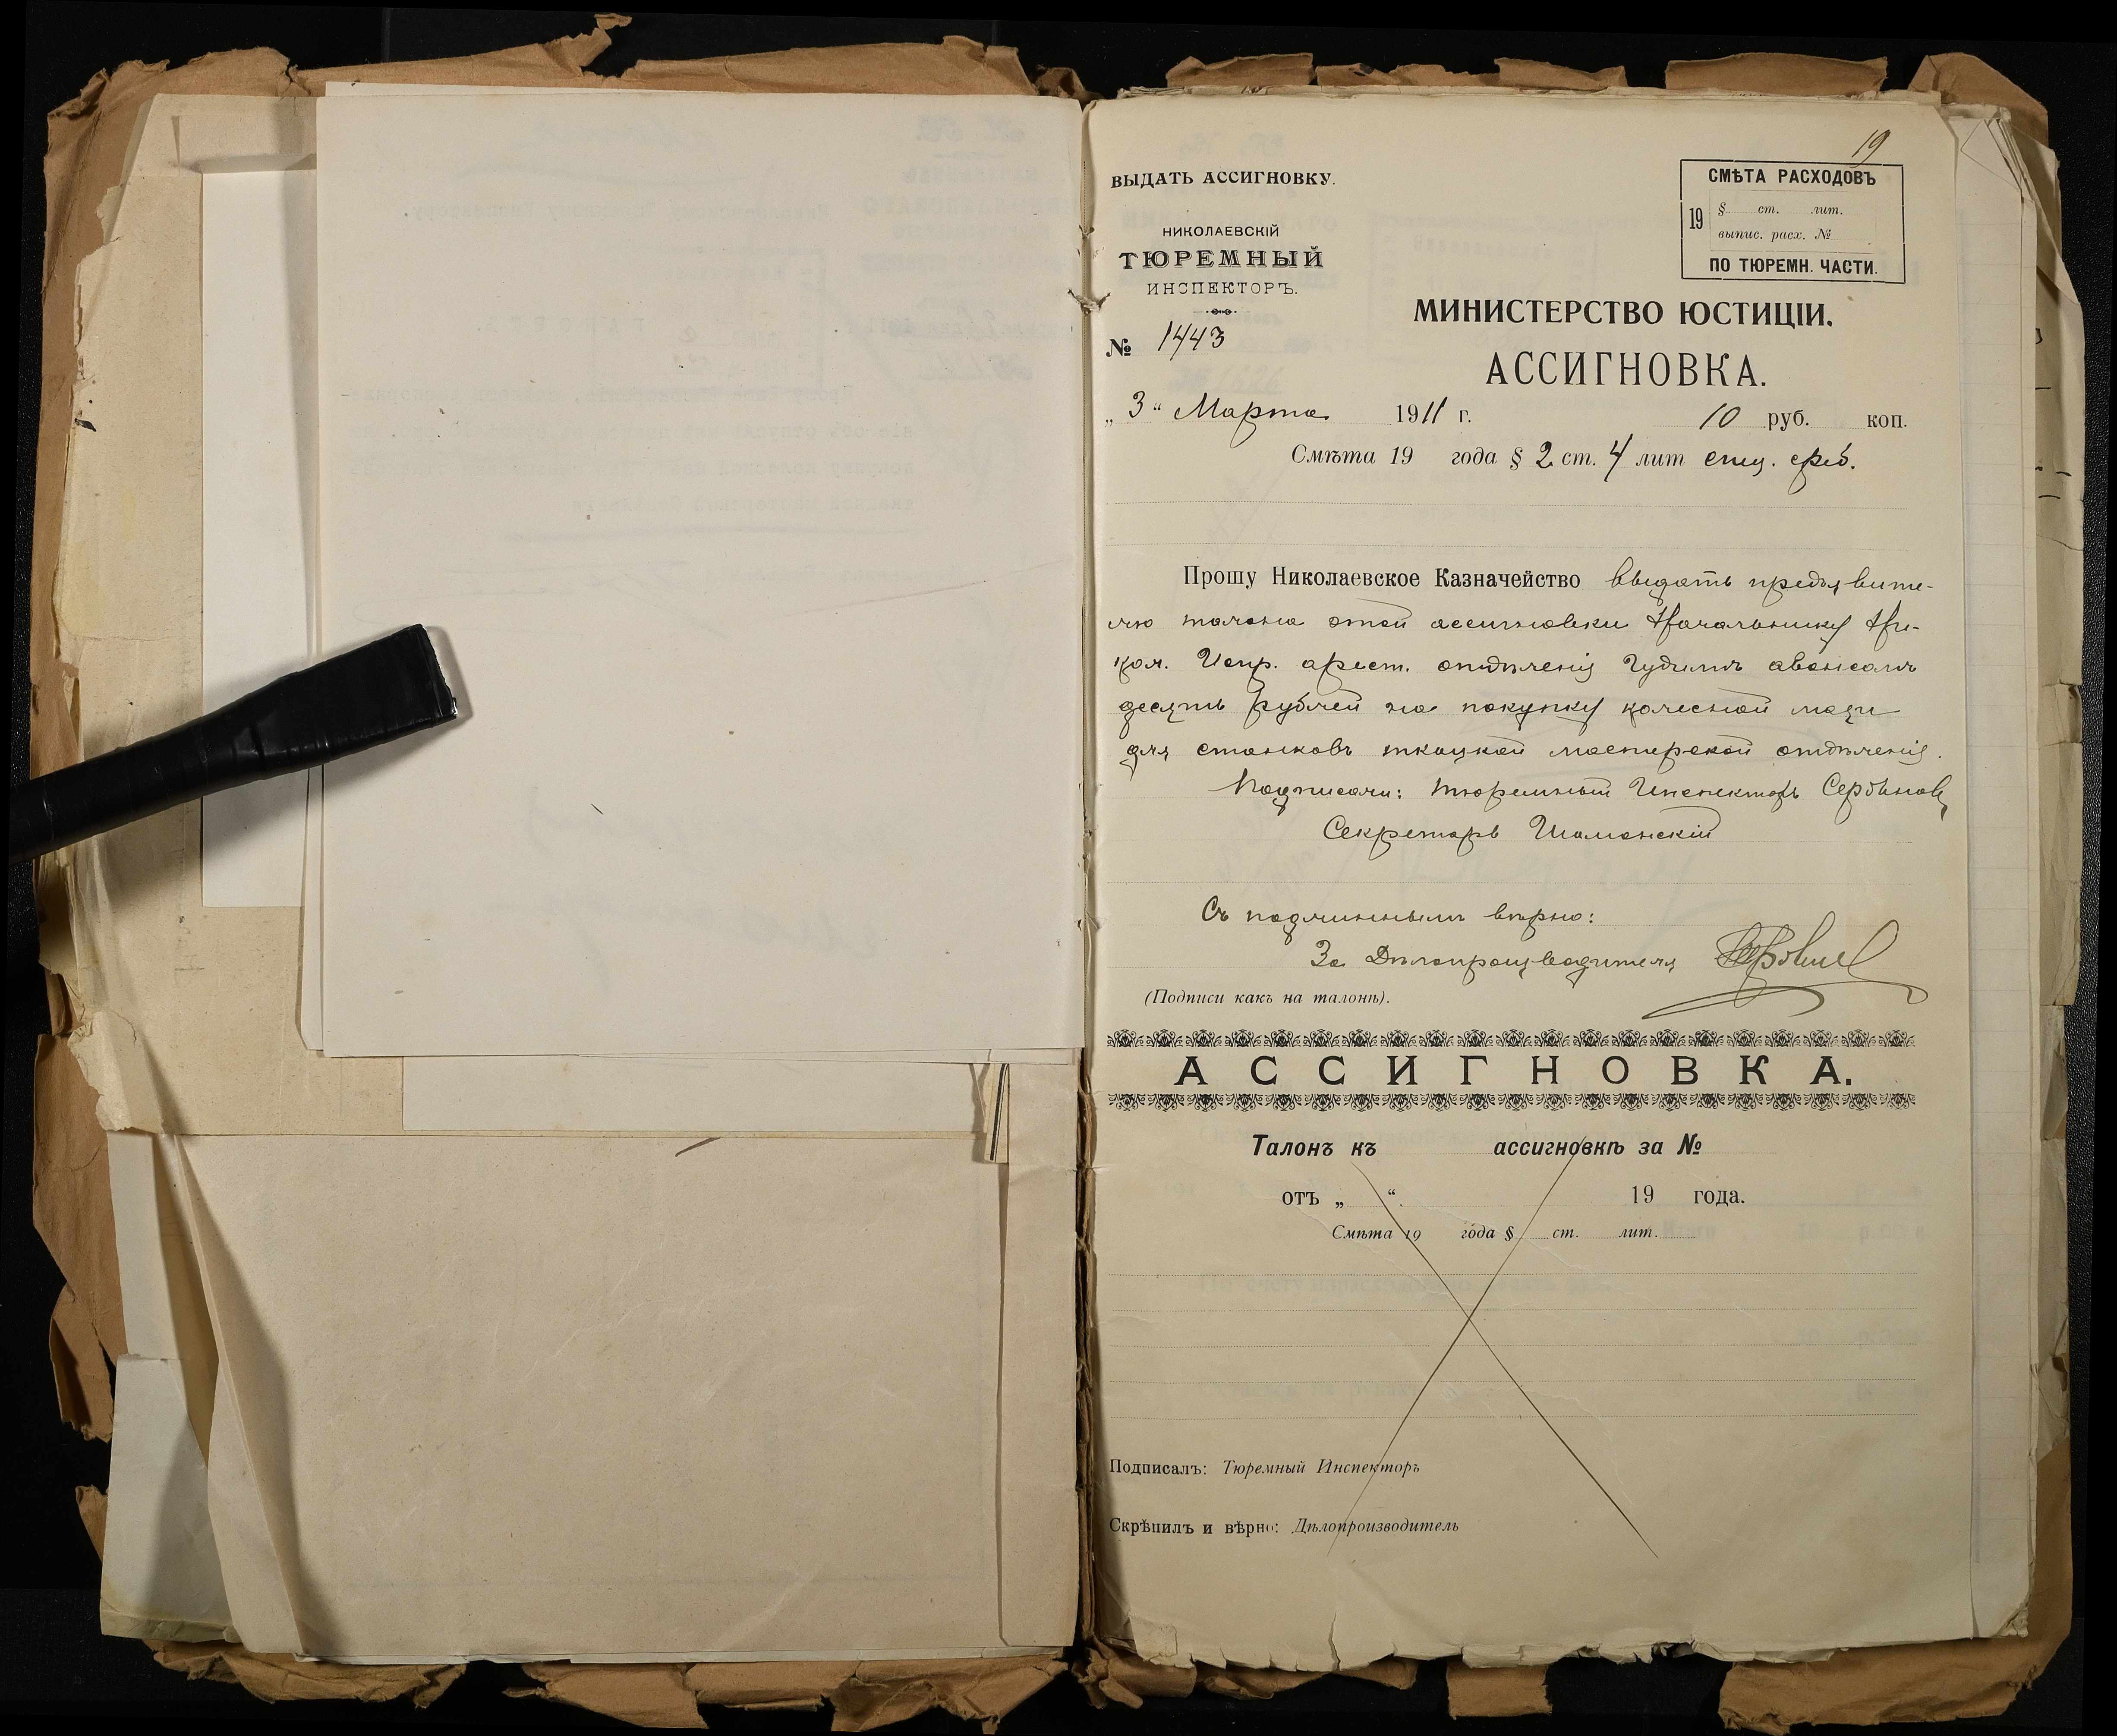 19
ВЫДАТЬ АССИГНОВКУ.
СМѢТА РАСХОДОВЪ
19 § ст. лит.
выпис. расх. №
ПО ТЮРЕМН. ЧАСТИ.
НИКОЛАЕВСКІЙ
ТЮРЕМНЫЙ
ИНСПЕКТОРЪ.
№ 1443
МИНИСТЕРСТВО ЮСТИЦІИ.
АССИГНОВКА.
„3“ Марта 1911 г. 10 руб. коп.
Смѣта 19 года § 2 ст. 4 лит спец. сред.
Прошу Николаевское Казначейство выдать предъявите-
лю талона этой ассигновки Начальнику Ни-
кол. Испр. арест. отдѣленія Гудимъ авансомъ
десять рублей на покупку колесной мази
для станковъ ткацкой мастерской отдѣленія.
Подписали: Тюремный Инспекторъ Сербиновъ
Секретарь Шаманскій
Съ подлиннымъ вѣрно:
За Дѣлопроизводителя
(Подписи какъ на талонѣ).
АССИГНОВКА.
Талонъ къ ассигновкѣ за №
отъ „ “ 19 года.
Смѣта 19 года § ст. лит.
Подписалъ: Тюремный Инспекторъ
Скрѣпилъ и вѣрно: Дѣлопроизводитель